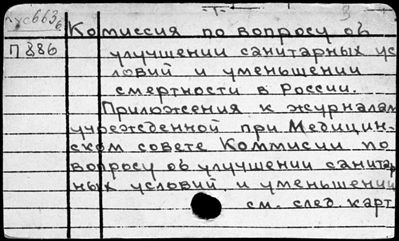 Рус663б
Комиссия по вопросу об
П886
улучшении санитарных ус
ловий и уменьшении
смертности в России.
Приложения к журналам
учрежденной при Медицин-
ском совете Коммисии по
вопросу об улучшении санитар
ных условий и уменьшении
см. след. карт